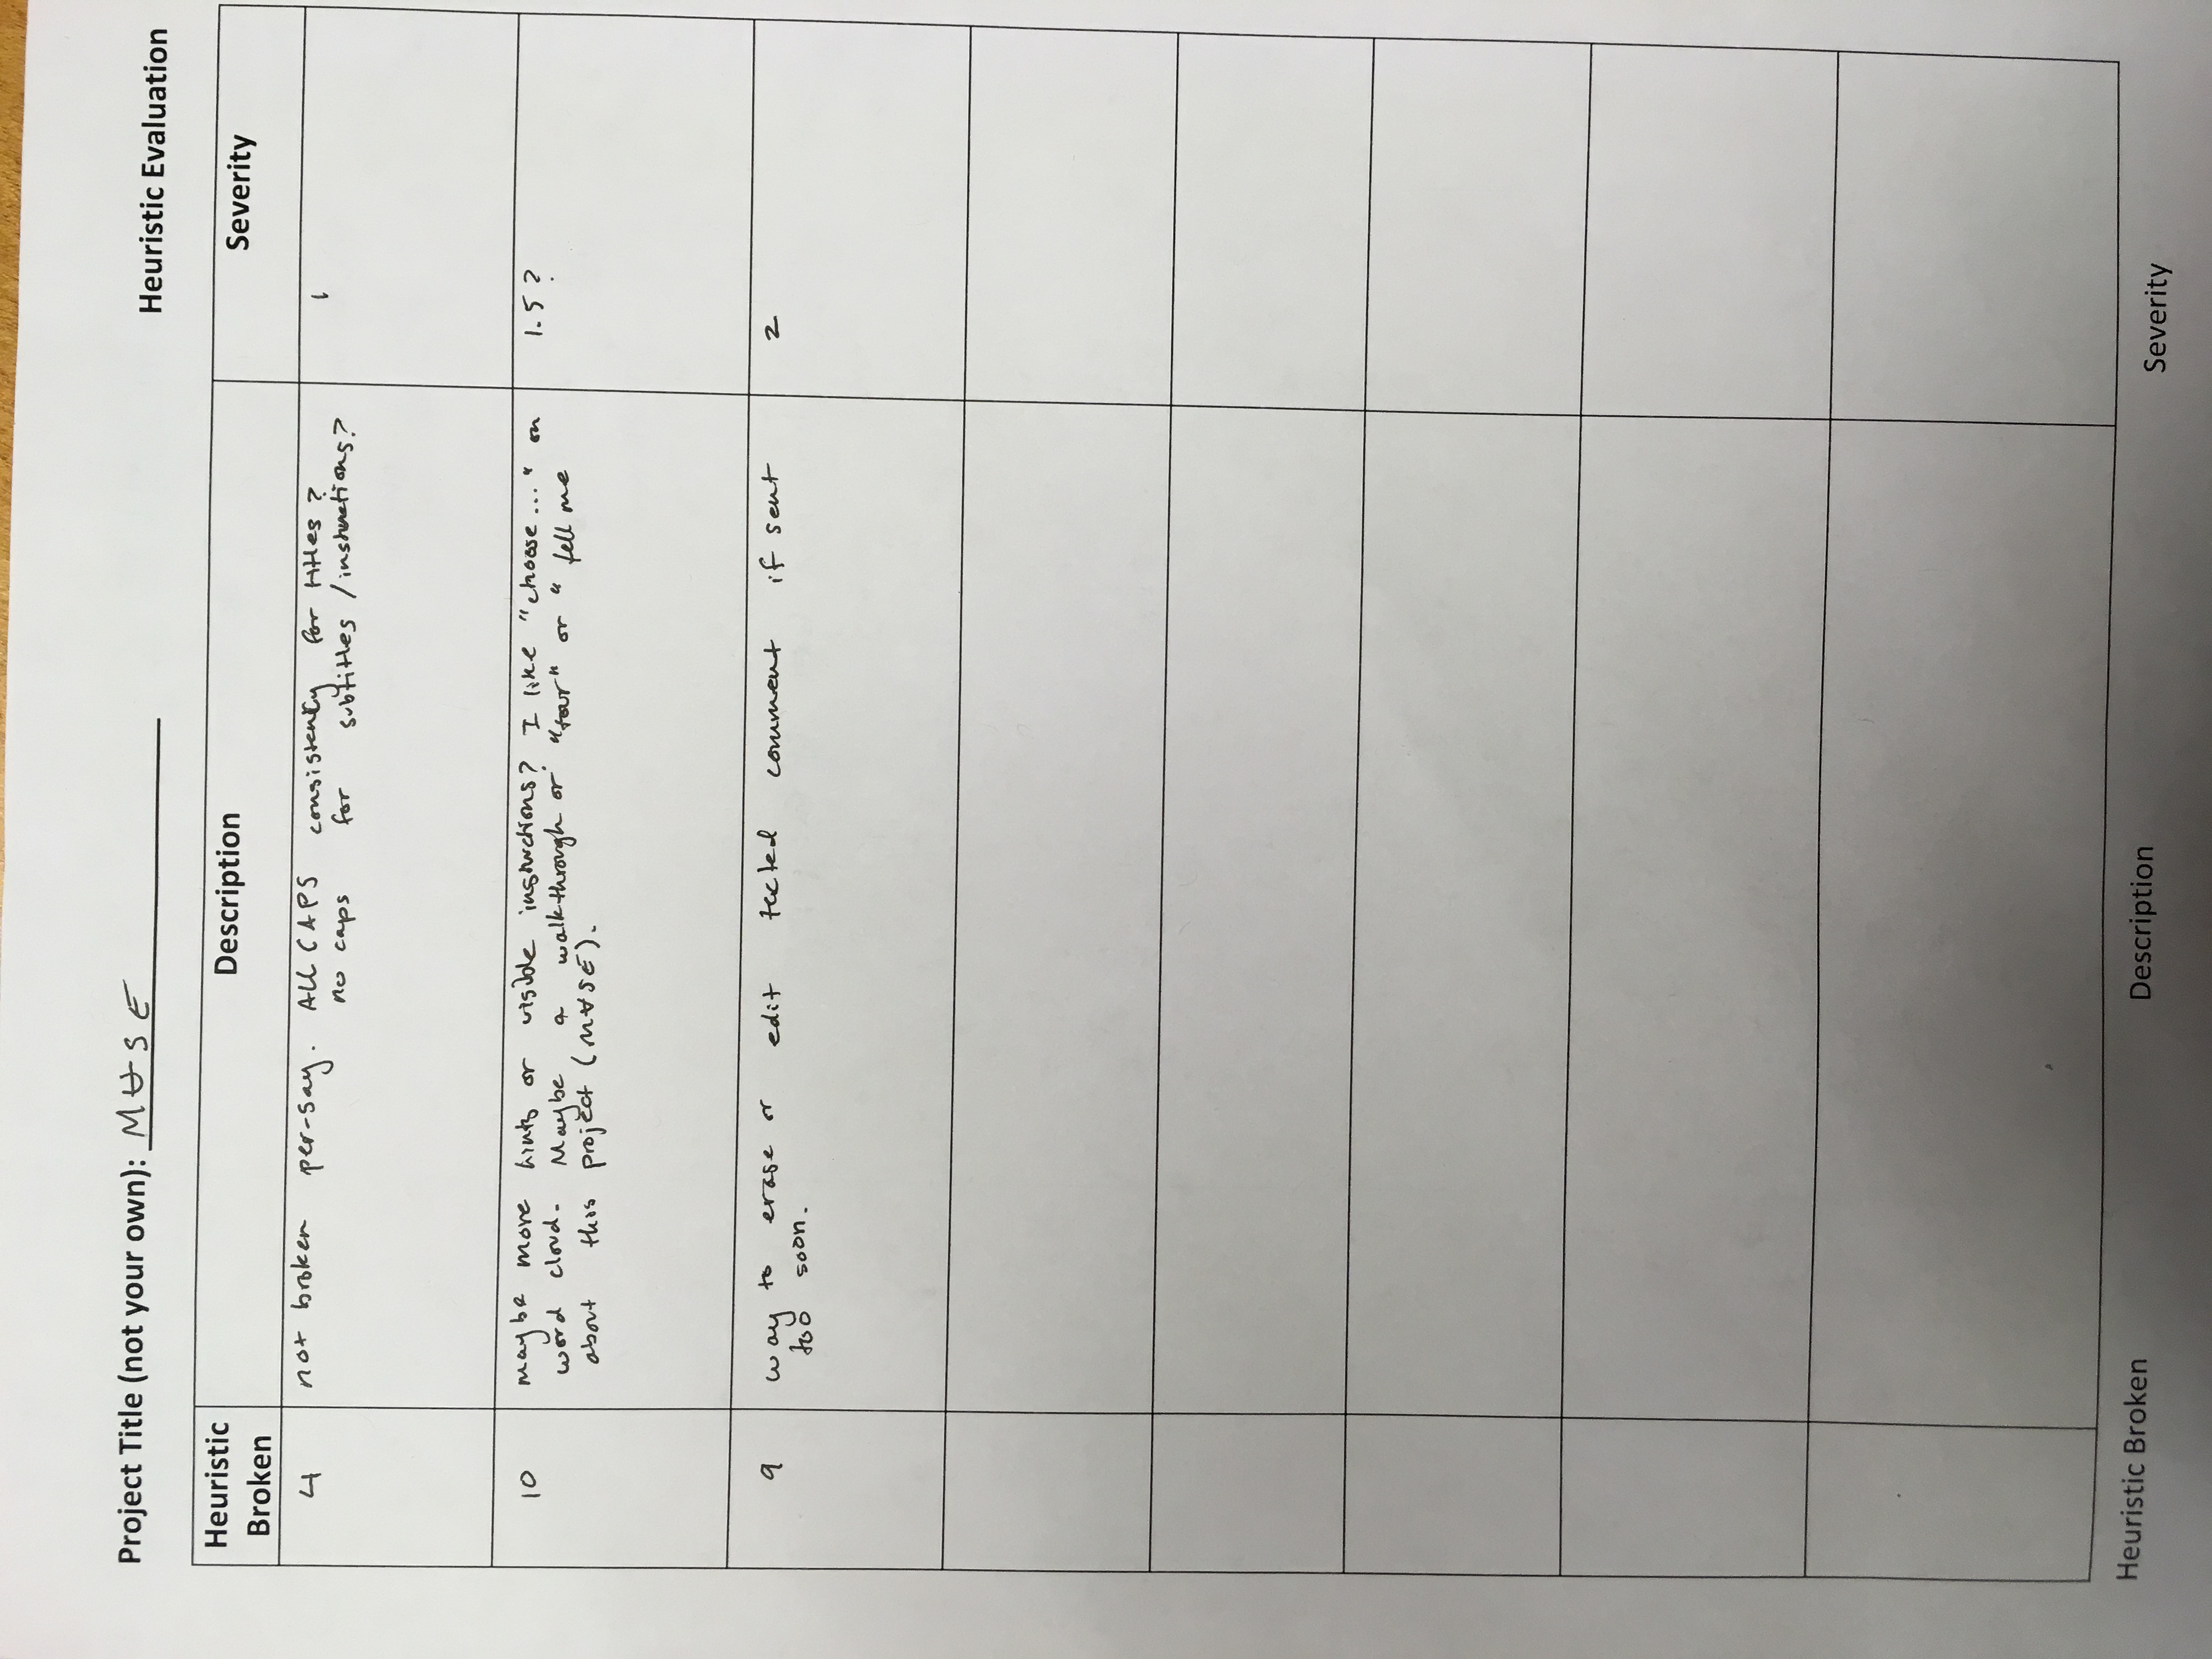 Project Title (not your own): MUSE
Heuristic Evaluation
Heuristic Broken
Description
Severity
4
not broken per-say. ALL CAPS consistently for titles?
no caps for subtitles / instructions?
1
10
maybe more hints or visible instructions? I like "choose..." on
word cloud. Maybe a walkthrough or "tour" or " tell me
about this project (M∀SE).
1.5?
9
way to erase or edit texted comment if sent
too soon.
2
Heuristic Broken
Description
Severity